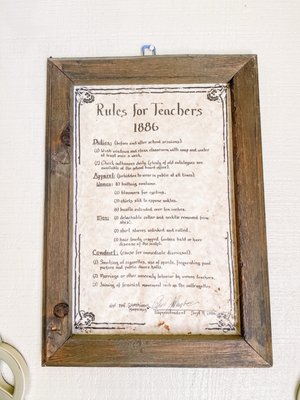 Rules for Teachers
1886
Duties: (before and after school sessions)
(1) Wash windows and clean classroom with soap and water
at least once a week.
(2) Check outhouses daily. (plenty of old catalogues are
available at the school board office).
Apparel: (forbidden to wear in public at all times).
Women: (1) bathing costume
(2) bloomers for cycling.
(3) skirts slit to expose ankles.
(4) bustle extended over ten inches.
Men: (1) detachable collar and necktie removed from
shirt.
(2) shirt sleeves unlinked and rolled.
(3) hair closely cropped (unless bald or have
disease of the scalp).
Conduct: (cause for immediate dismissal).
(1) Smoking of cigarettes, use of spirits, frequenting pool
parlors and public dance halls.
(2) Marriage or other unseemly behavior by women teachers.
(3) Joining of feminist movement such as the suffragettes.
Superintendent Sept